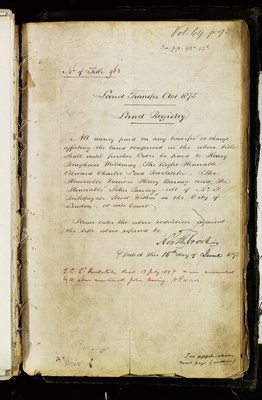 Vol 69 p 9
No. of Title 963
Land Transfer Act 1875
Land Registry
All money paid on any transfer or charge
affecting the land comprised in the above title
shall until further Order be paid to Henry
Bingham Mildmay The Right Honorable
Edward Charles Lord Revelstoke, The
Honorable Francis Henry Baring and The
Honorable John Baring all of No. 8
Bishopsgate Street Within in the City of
London, or into Court.
Please enter the above restriction against
the title above referred to.
Dated this 16th day of June
Lord Revelstoke died 17 July 1897
by the above mentioned John Baring.
See application